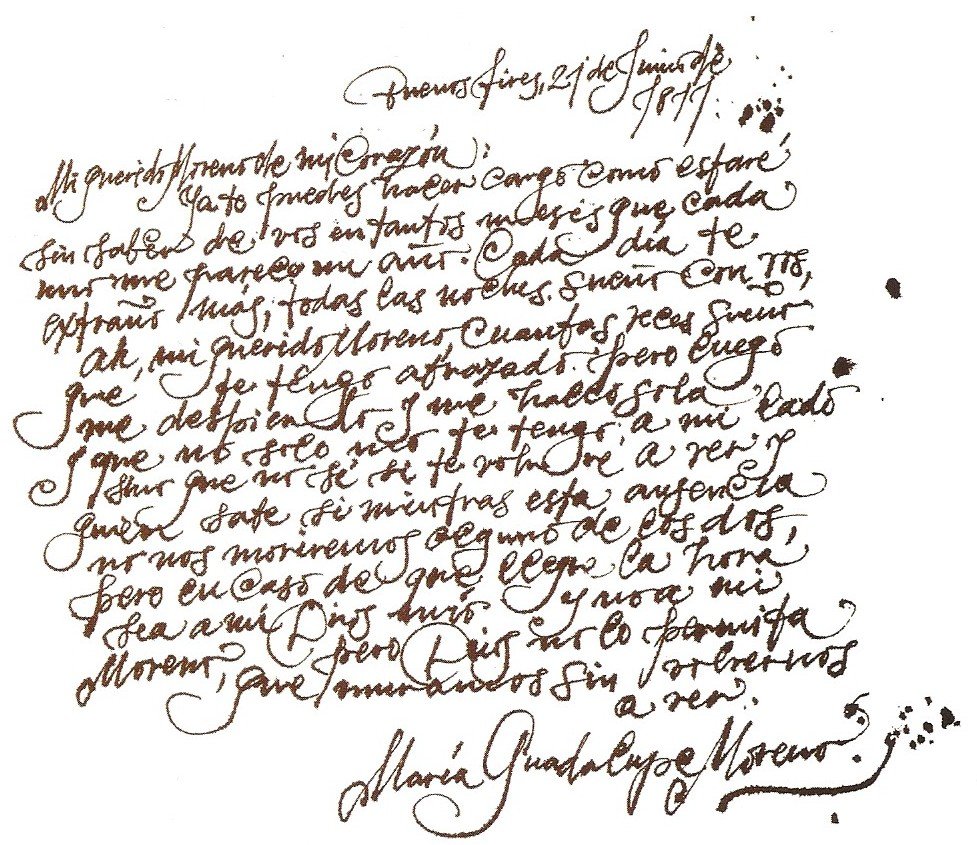 Buenos Aires, 21 de Junio de
1811.
Mi querido Moreno de mi corazón:
Ya te puedes hacer cargo como estaré
sin saber de vos en tantos meses que cada
uno me parece un año. Cada día te
extraño más, todas las noches sueño con vos,
ah, mi querido Moreno, cuantas veces sueño
que te tengo abrazado. Pero luego
me despierto y me hallo sola
y que no solo no te tengo a mi lado
sino que no sé si te volveré a ver y
quién sabe si mientras esta ausencia
no nos moriremos alguno de los dos,
pero en caso de que llegue la hora
sea a mí Dios mío y no a mi
Moreno, pero Dios no lo permita
que muramos sin volvernos
a ver.
María Guadalupe Moreno.